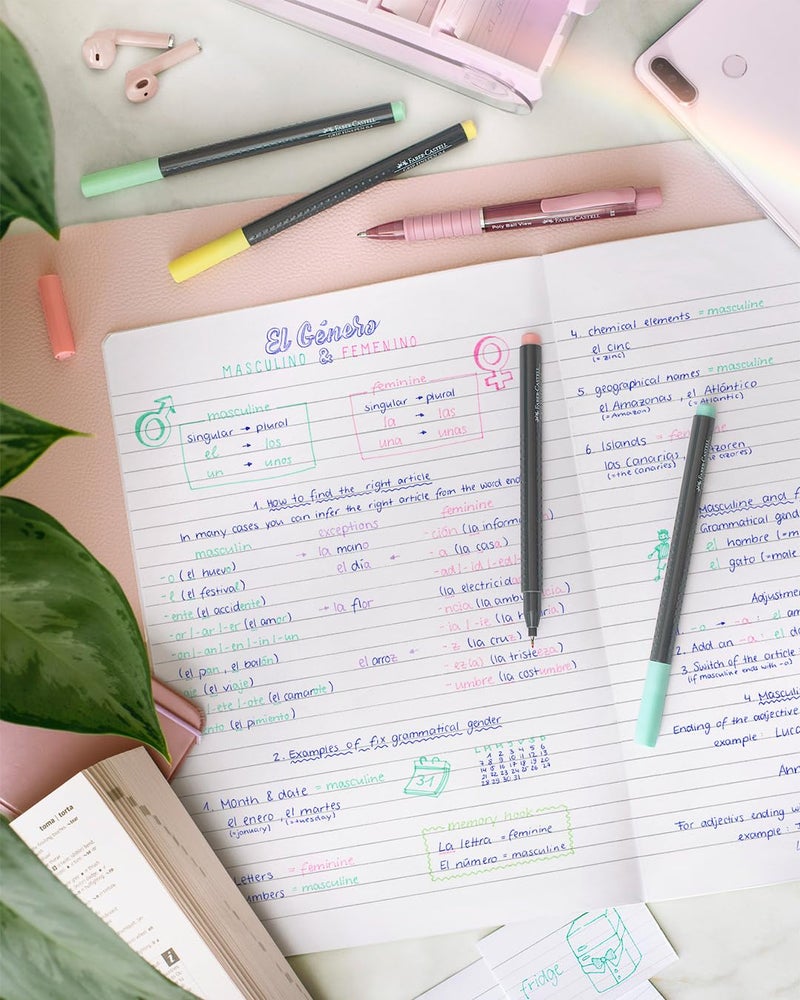 FABER-CASTELL
GRIP FINEPEN 0.4
FABER-CASTELL
Poly Ball View
FABER-CASTELL
El Género
MASCULINO & FEMENINO
masculine
singular → plural
el → los
un → unos
feminine
singular → plural
la → las
una → unas
1. How to find the right article
In many cases you can infer the right article from the word end
masculin
-o (el huevo)
-e (el festival)
-ente (el accidente)
-or/-ar/-er (el amor)
-on/-an/-en/-in/-un
(el pan, el balón)
aje (el viaje)
-ete/-ote (el camarote)
nto (el pimiento)
exceptions
→ la mano
el día ←
→ la flor
el arroz ←
feminine
-ción (la inform
-a (la casa)
-ad/-id/-ed/
(la electricidad
-ncia (la ambu
-ia/-ie (la
-z (la cruz)
-ez(a) (la tristeza)
-umbre (la costumbre)
2. Examples of fix grammatical gender
1. Month & date = masculine
el enero, el martes
(=january) (=tuesday)
31
L M M J V S D
1 2 3 4 5 6
7 8 9 10 11 12 13
14 15 16 17 18 19 20
21 22 23 24 25 26 27
28 29 30 31
Letters = feminine
umbers = masculine
memory hook
La letra = feminine
El número = masculine
4. chemical elements = masculine
el cinc
(= zinc)
5. geographical names = masculine
el Amazonas, el Atlántico
(=Amazon) (=Atlantic)
6. Islands = fem
las Canarias, zoren
(=the canaries) e azores)
Masculine and f
Grammatical gend
el hombre (=m
el gato (=male
Adjustme
1. -o → -a: el am
2. Add an -a: el d
3. Switch of the article:
(if masculine ends with -a)
4. Masculi
Ending of the adjective
example: Luca
Ann
For adjectivs ending w
example: T
toma | torta
i
fridge